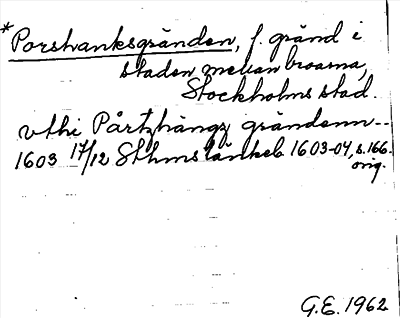 * Porshanksgränden, f. gränd i
staden mellan broarna,
Stockholms stad.
vthi Pårtzhängz grändenn--
1603 17/12 Sthms tänkeb 1603-04, s. 166.
orig.
G.E. 1962